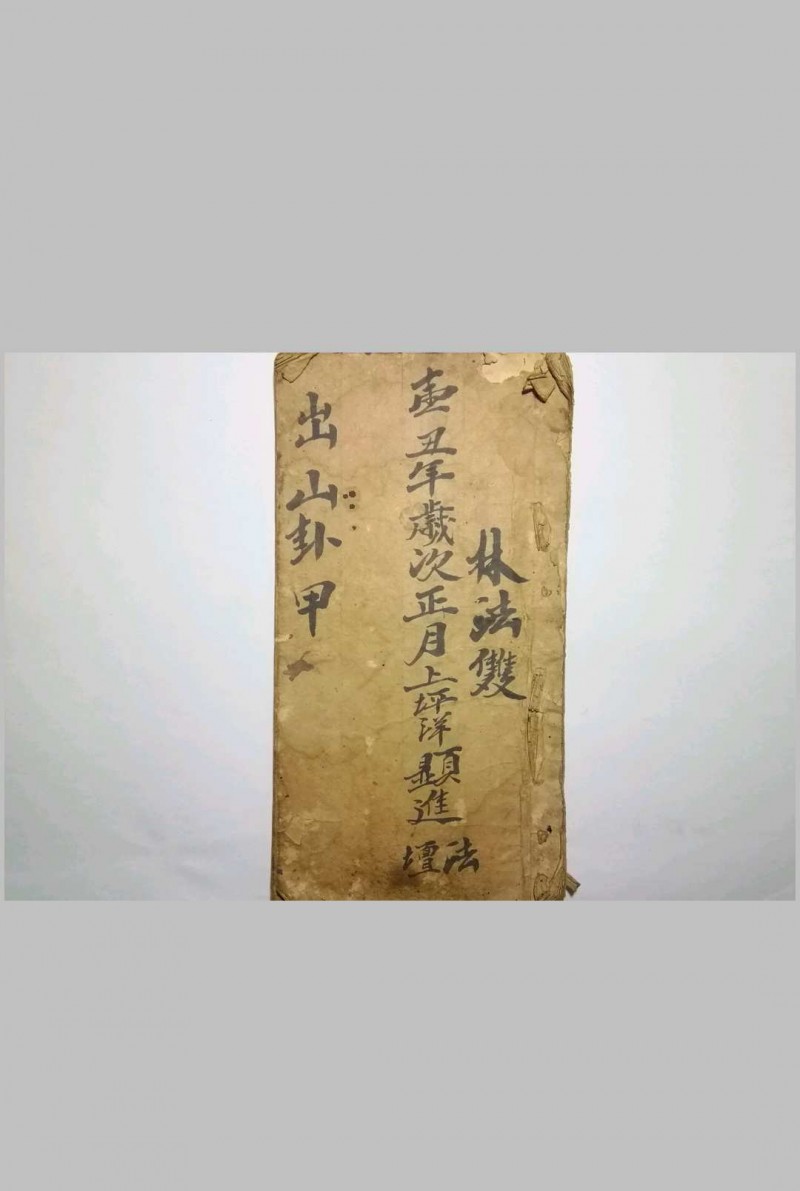 林法雙
丑年歲次正月上坪洋顯進法壇
出山卦甲